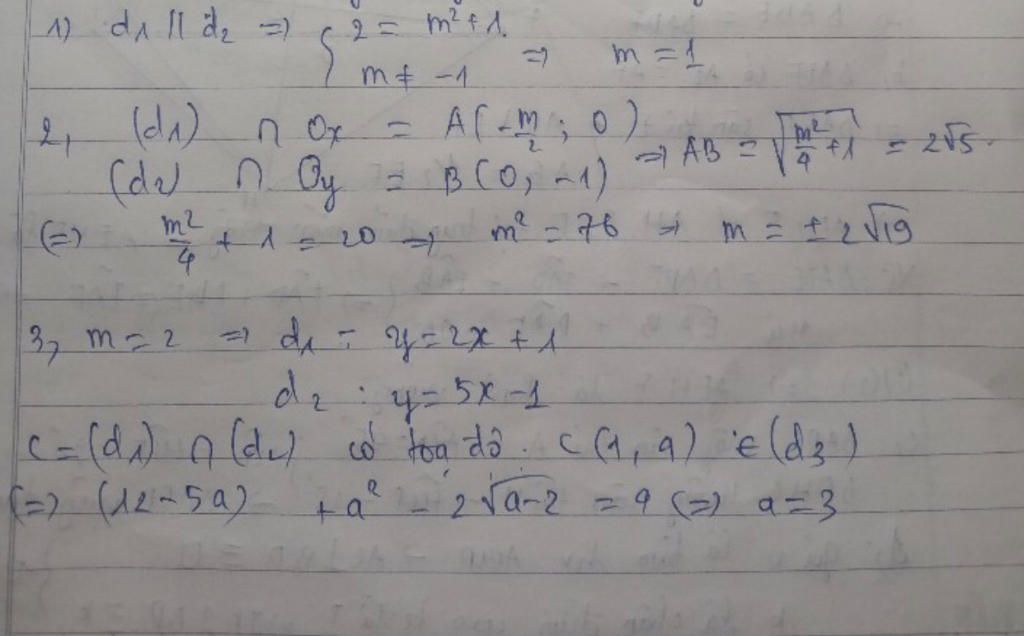 1) d1 // d2 => { 2 = m²+1.
m ≠ -1 => m = 1
2, (d1) ∩ Ox = A(-m/2; 0)
(d2) ∩ Oy = B(0, -1) => AB = √(m²/4 + 1) = 2√5.
(=> m²/4 + 1 = 20 => m² = 76 => m = ± 2√19
3, m = 2 => d1 : y = 2x + 1
d2 : y = 5x - 1
C = (d1) ∩ (d2) có toạ độ . C(1, 4) ∈ (d3)
(=> (12 - 5a) + a² - 2√a-2 = 4 (=> a = 3